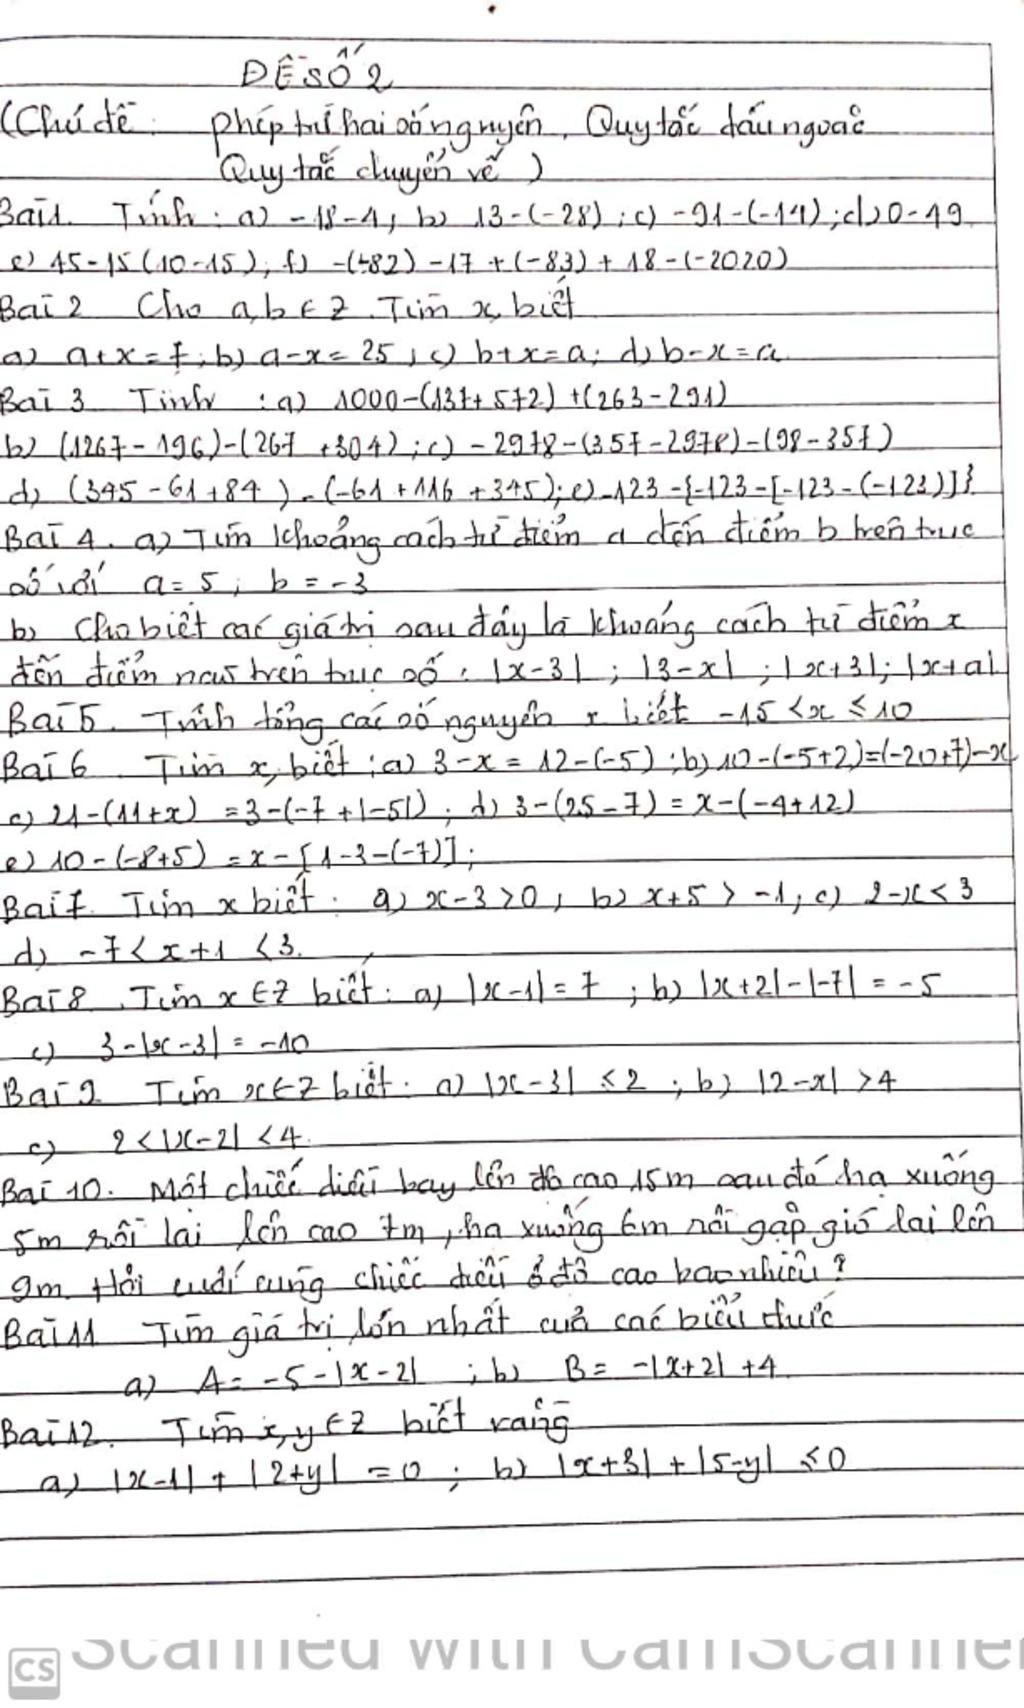 ĐỀ SỐ 2
(Chủ đề: phép trừ hai số nguyên, Quy tắc dấu ngoặc
Quy tắc chuyển vế)
Bài 1. Tính: a) -18-4; b) 13-(-28); c) -91-(-14); d) 0-49
e) 45-15(10-15); f) -(-82)-17+(-83)+18-(-2020)
Bài 2 Cho a,b ∈ Z. Tìm x, biết
a) a+x=7; b) a-x=25; c) b+x=a; d) b-x=a
Bài 3 Tính: a) 1000-(137+572)+(263-291)
b) (1267-196)-(267+304); c) -2978-(357-2978)-(98-357)
d) (345-61+84)-(-61+116+345); e) -123-{-123-[-123-(-123)]}
Bài 4. a) Tìm khoảng cách từ điểm a đến điểm b trên trục
số với a=5; b=-3
b) Cho biết các giá trị sau đây là khoảng cách từ điểm x
đến điểm nào trên trục số: |x-3|; |3-x|; |x+3|; |x+a|
Bài 5. Tính tổng các số nguyên x biết -15<x≤10
Bài 6 Tìm x, biết: a) 3-x=12-(-5); b) 10-(-5+2)=(-20+7)-x
c) 21-(11+x)=3-(-7+|-5|); d) 3-(25-7)=x-(-4+12)
e) 10-(-8+5)=x-[1-3-(-7)];
Bài 7. Tìm x biết: a) x-3>0; b) x+5>-1; c) 2-x<3
d) -7<x+1<3.
Bài 8. Tìm x∈Z biết: a) |x-1|=7; b) |x+2|-|-7|=-5
c) 3-|x-3|=-10
Bài 9 Tìm x∈Z biết: a) |x-3|≤2; b) |2-x|>4
c) 2<|x-2|<4.
Bài 10. Một chiếc diều bay lên độ cao 15m sau đó hạ xuống
5m rồi lại lên cao 7m, hạ xuống 6m rồi gặp gió lại lên
9m. Hỏi cuối cùng chiếc diều ở độ cao bao nhiêu?
Bài 11 Tìm giá trị lớn nhất của các biểu thức
a) A=-5-|x-2|; b) B=-|x+2|+4
Bài 12. Tìm x,y∈Z biết rằng
a) |x-1|+|2+y|=0; b) |x+3|+|5-y|≤0
CS Scanned with CamScanner